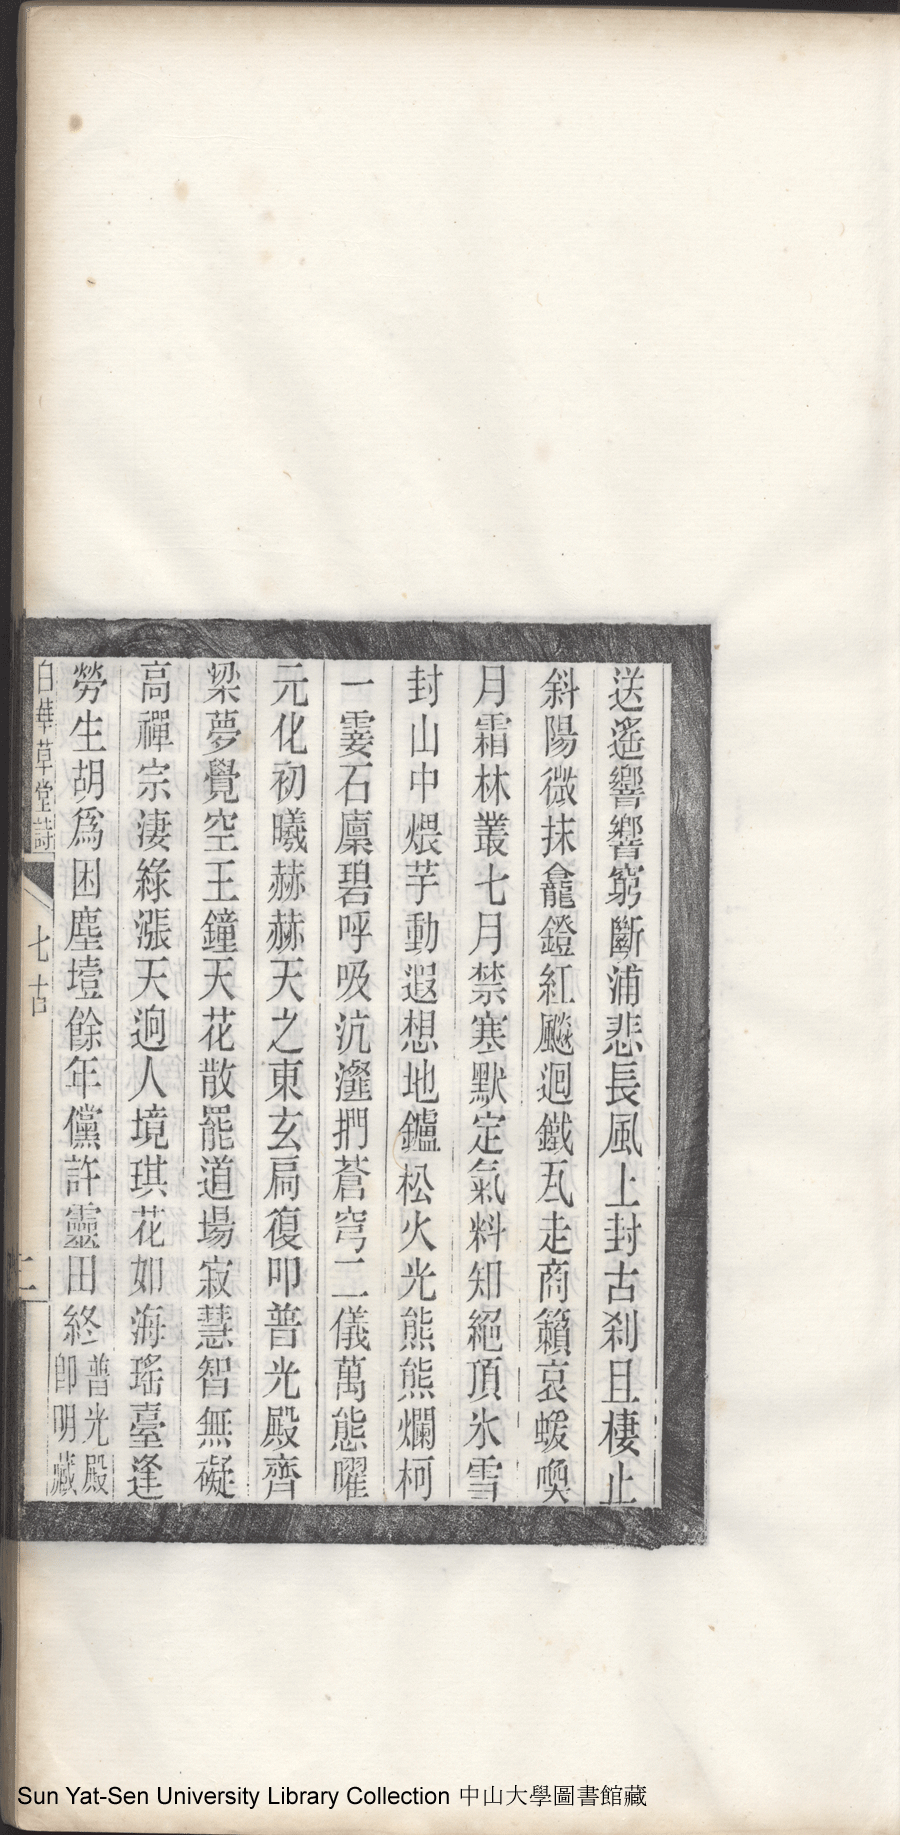 送遙響響窮斷浦悲長風上封古刹且棲止
斜陽微抹龕鐙紅飈迴鐵瓦走商籟哀蝯喚
月霜林叢七月禁寒默定氣料知絕頂氷雪
封山中煨芋動遐想地鑪松火光熊熊爛柯
一霎石廩碧呼吸沆瀣捫蒼穹二儀萬態曜
元化初曦赫赫天之東玄扃復叩普光殿齊
梁夢覺空王鐘天花散罷道場寂慧智無礙
高禪宗淒綠漲天逈人境琪花如海瑤臺逢
勞生胡爲困塵壒餘年儻許靈田終普光殿
卽明藏
白華草堂詩 七古 二
Sun Yat-Sen University Library Collection 中山大學圖書館藏